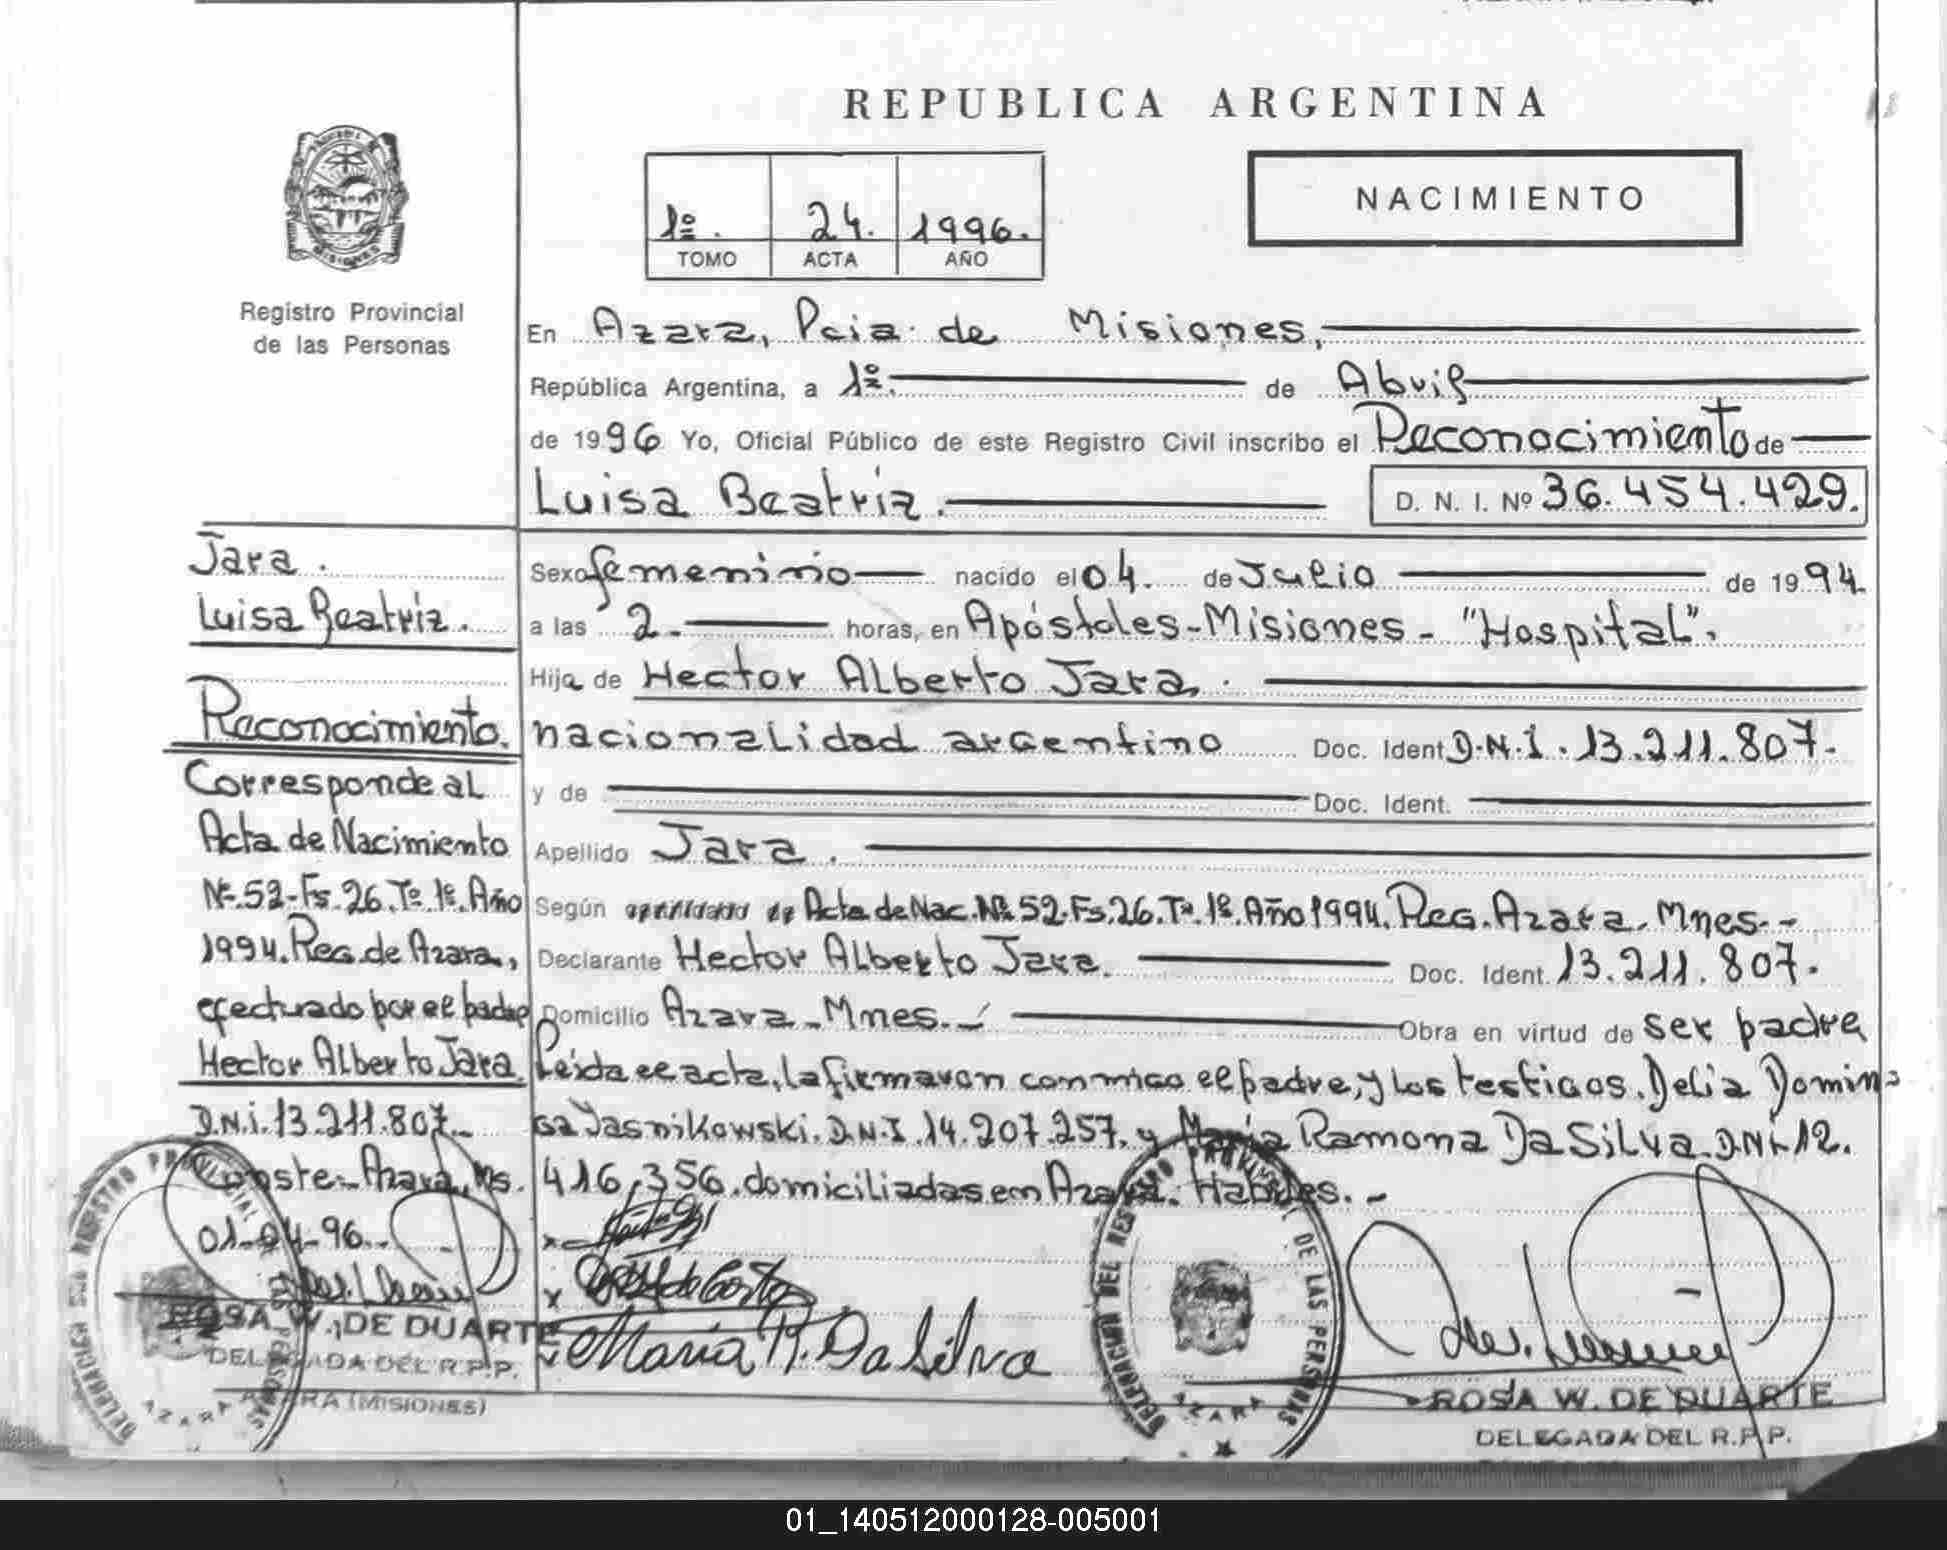 REPUBLICA ARGENTINA
1º. 24. 1996.
TOMO ACTA AÑO
NACIMIENTO
MISIONES
Registro Provincial
de las Personas
En Azara, Pcia. de Misiones,
República Argentina, a 1º. de Abril
de 1996 Yo, Oficial Público de este Registro Civil inscribo el Reconocimiento de
Luisa Beatríz. D. N. I. Nº 36.454.429.
Jara.
Luisa Beatríz.
Reconocimiento.
Corresponde al
Acta de Nacimiento
Nº.52-Fs.26.Tº.1º.Año
1994.Reg.de Azara,
efecturado por el padre
Hector Alberto Jara.
D.N.i.13.211.807.-
Conste.-Azara, Ms.
01-04-96.-
ROSA W. DE DUARTE
DELEGADA DEL R.P.P.
AZARA (MISIONES)
Sexo femenino nacido el 04. de Julio de 1994.
a las 2.- horas, en Apóstoles-Misiones- "Hospital".
Hija de Hector Alberto Jara.
nacionalidad argentino Doc. Ident. D.N.I. 13.211.807.-
y de Doc. Ident.
Apellido Jara.
Según Acta de Nac.Nº.52.Fs.26.Tº.1º.Año 1994.Reg.Azara.Mnes.-
Declarante Hector Alberto Jara. Doc. Ident. 13.211.807.
Domicilio Azara-Mnes.- Obra en virtud de ser padre
Leída el acta, la firmaron conmigo el padre, y los testigos. Delia Domin=
ga Jasnikowski. D.N.I. 14.207.257. y María Ramona DaSilva. D.Ni-12.
416.356. domiciliadas en Azara. Habiles.-
x
x
María R. Da Silva
DELEGACION DEL REGISTRO PROVINCIAL DE LAS PERSONAS
AZARA
DELEGACION DEL REGISTRO PROVINCIAL DE LAS PERSONAS
AZARA
ROSA W. DE DUARTE
DELEGADA DEL R.P.P.
01_140512000128-005001